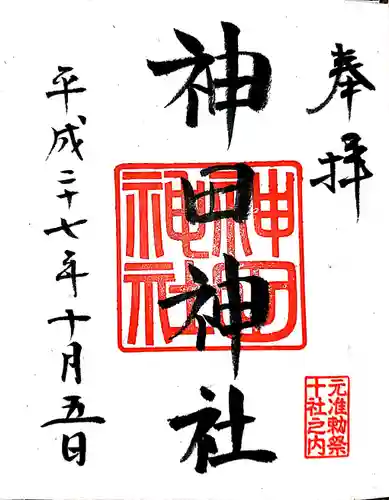 奉拝
神田神社
神田神社
元准勅祭
十社之内
平成二十七年十月五日